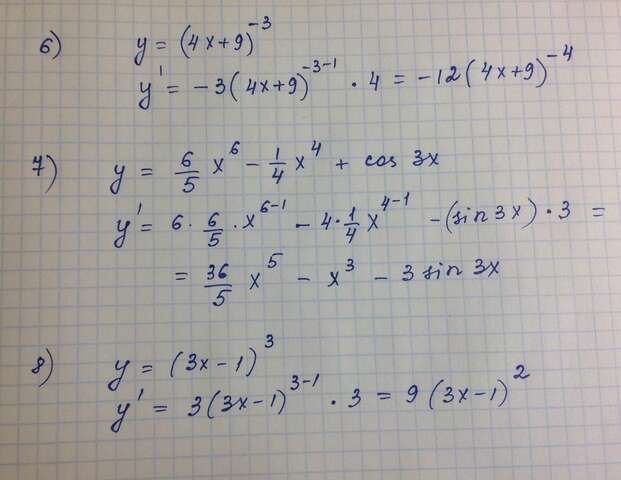 6) y = (4x+9)^-3
y' = -3(4x+9)^-3-1 · 4 = -12(4x+9)^-4
7) y = 6/5 x^6 - 1/4 x^4 + cos 3x
y' = 6 · 6/5 · x^6-1 - 4 · 1/4 x^4-1 - (sin 3x) · 3 =
= 36/5 x^5 - x^3 - 3 sin 3x
8) y = (3x-1)^3
y' = 3(3x-1)^3-1 · 3 = 9(3x-1)^2